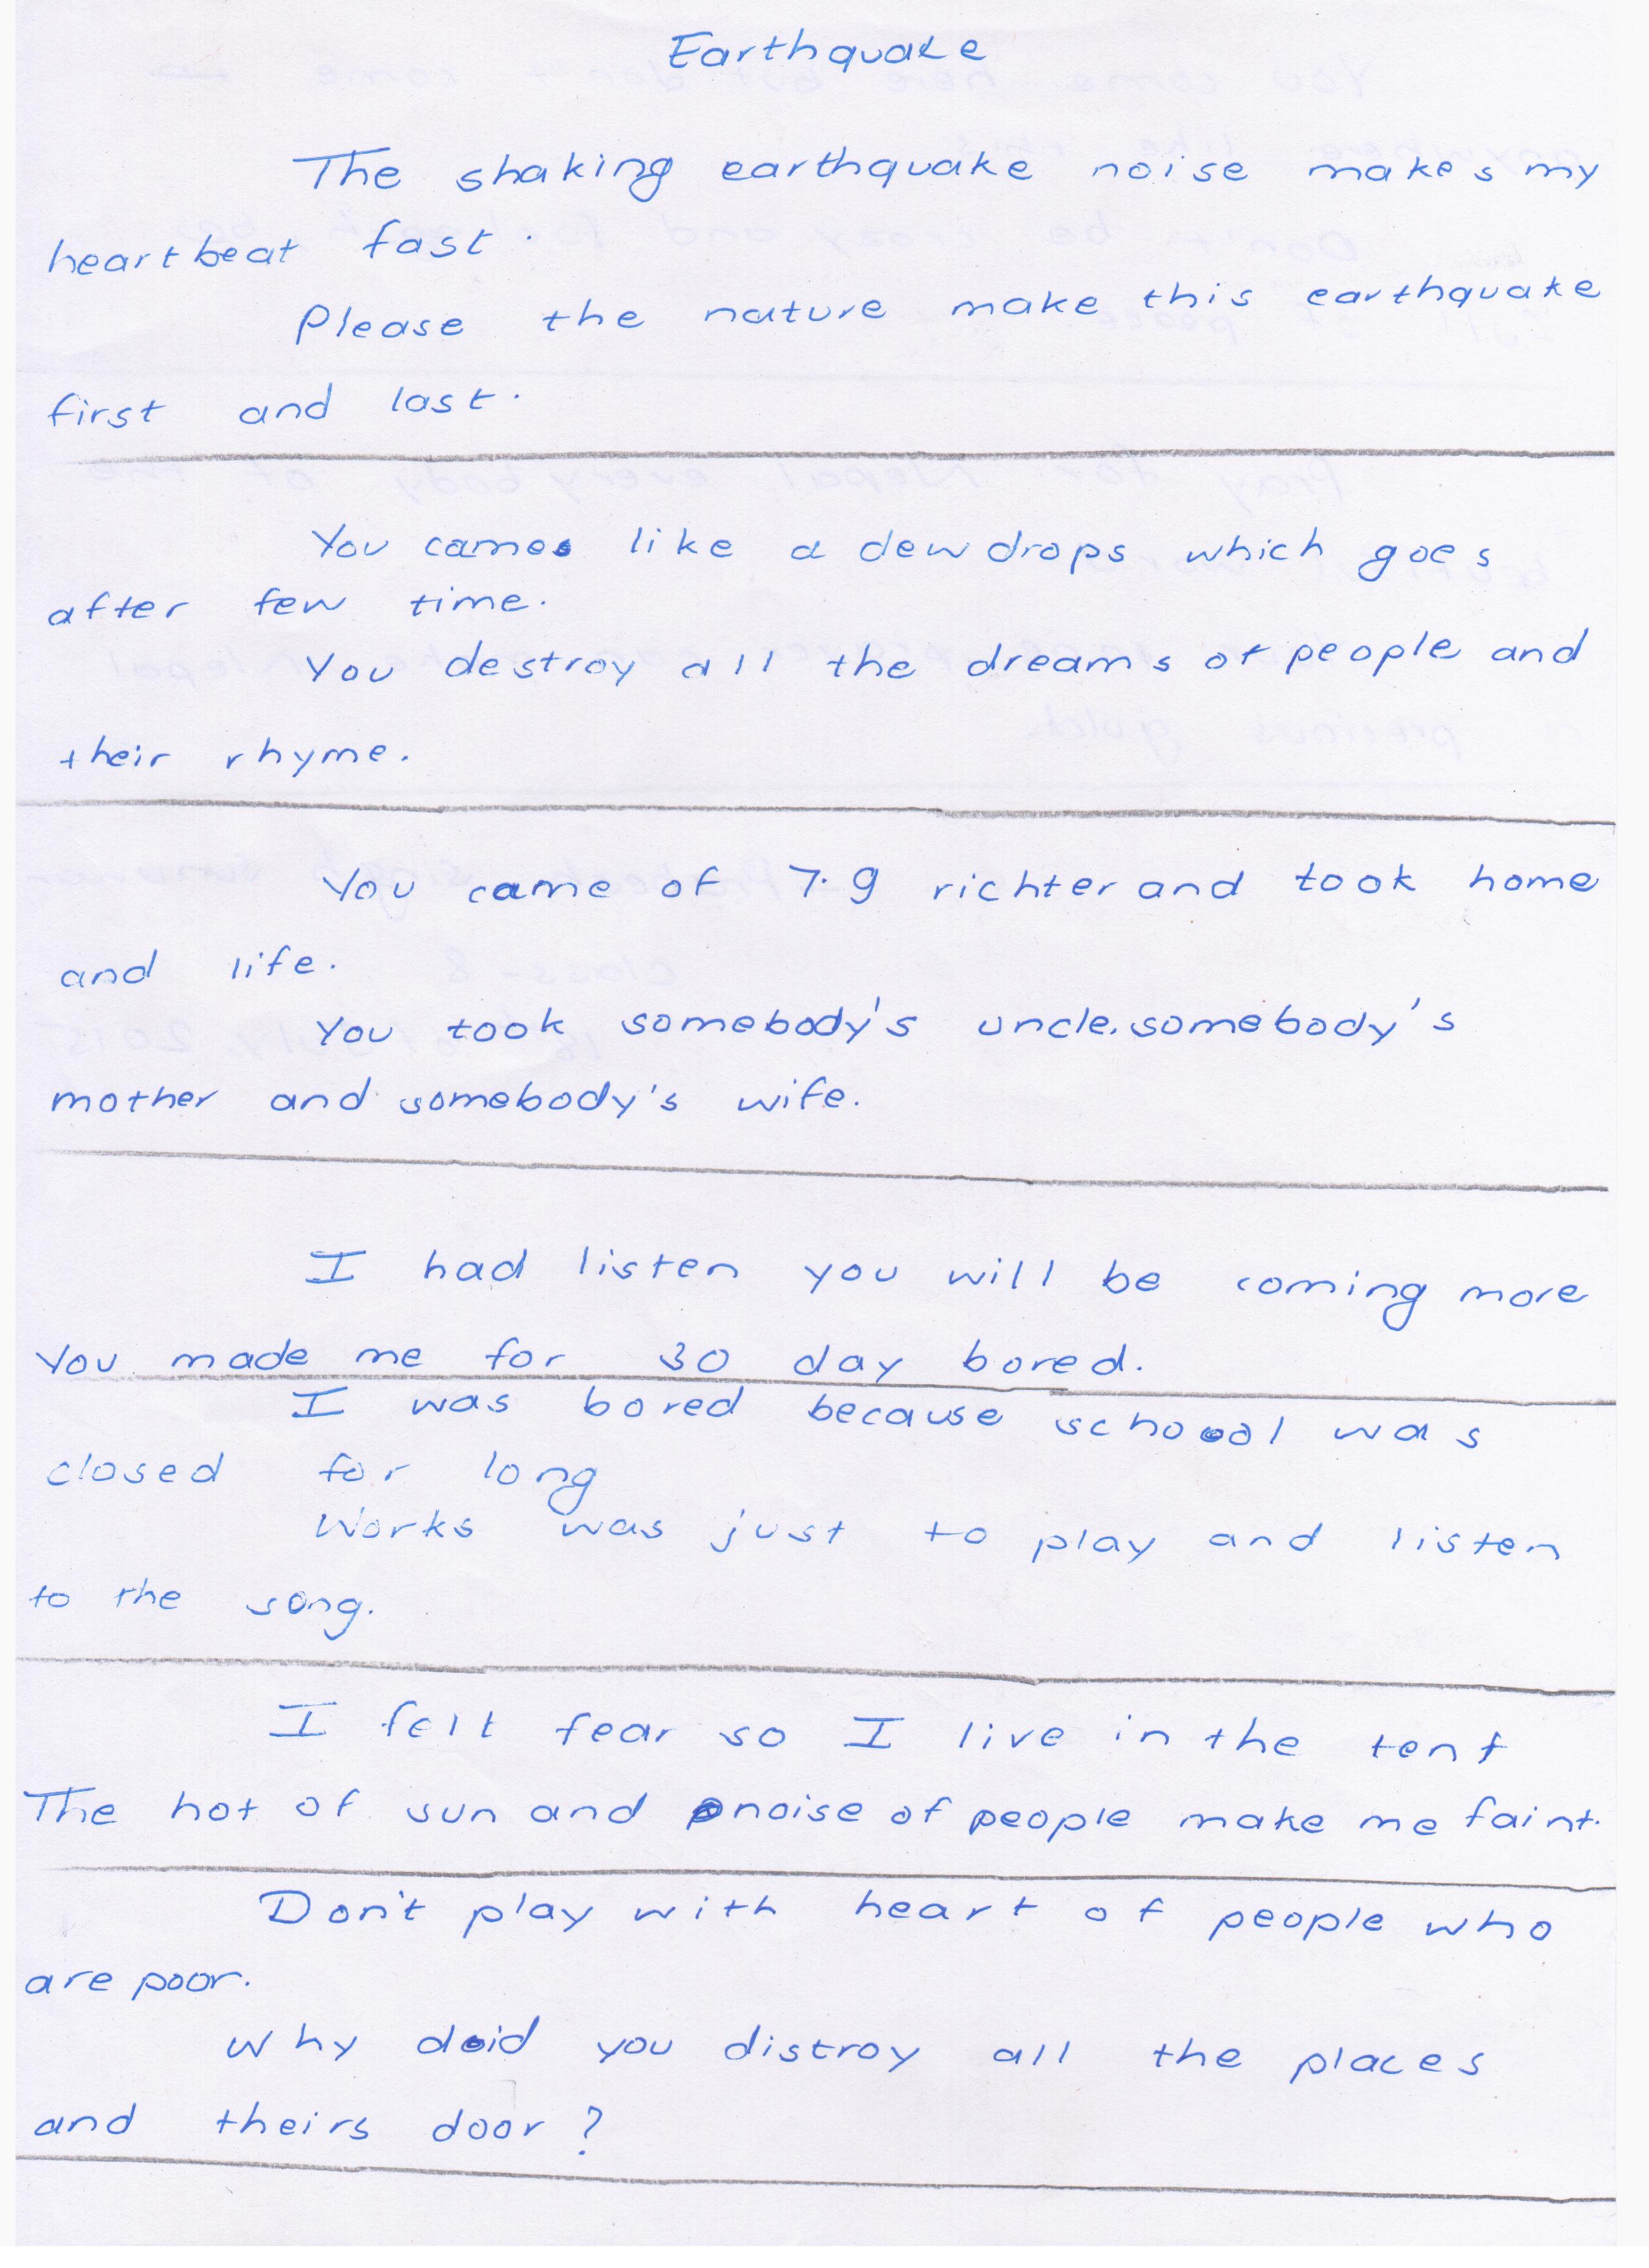 Earthquake
The shaking earthquake noise makes my
heartbeat fast.
Please the nature make this earthquake
first and last.
You cames like a dewdrops which goes
after few time.
You destroy all the dreams of people and
their rhyme.
You came of 7.9 richter and took home
and life.
You took somebody's uncle.somebody's
mother and somebody's wife.
I had listen you will be coming more
You made me for 30 day bored.
I was bored because school was
closed for long
Works was just to play and listen
to the song.
I felt fear so I live in the tent
The hot of sun and noise of people make me faint.
Don't play with heart of people who
are poor.
Why did you distroy all the places
and theirs door?